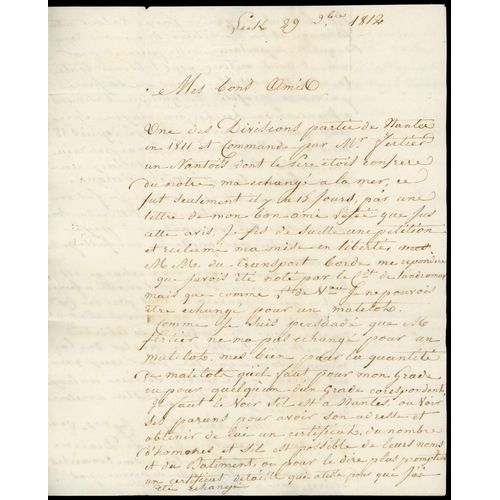 Leek 29 9bre 1812
Mes bons Amis
Une des Divisions partie de Nantes
en 1811 et Commandé par Mr Fertier
un Nantois dont le Pere etoit confrere
du notre, ma echangé a la mer, ce
fut seulement il y a 15 jours, par une
lettre de mon bon ami que jus
cette avis, Je fis de suitte une petition
et reclame ma mise en liberter
M. M. du Transport Borde me repondire
que javois été noté par le
mais que comme de Vau Je ne pouvois
être echangé pour un matelot.
Comme Je suis persuadé que M
Fertier ne ma pas echangé pour un
matelot, mes bien pour la quantité
de matelots qu'il faut pour mon Grade
ou pour quelqu'un d'un Grade corespondent,
Il faut le Voir Sil est a Nantes ou Voir
ses parans pour avoir son adresse et
obtenir de lui un certificat, du nombre
d'hommes et Sil est possible de leurs noms
et du Batiment, ou pour le dire plus promptem
un certificat detaillé que ateste que Jai
été echangé